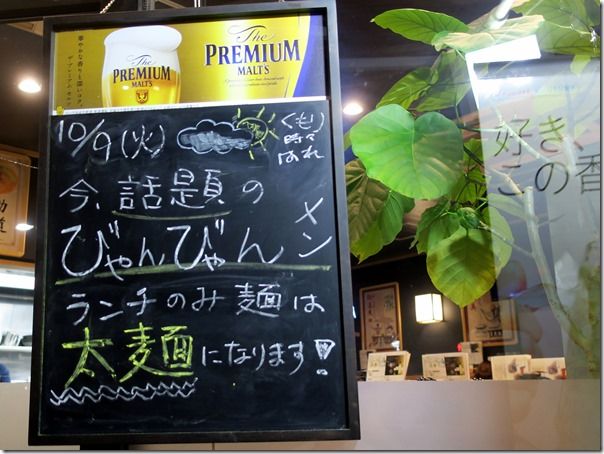 The
PREMIUM
MALT'S
The
PREMIUM
MALT'S
10/9(火)
くもり
時々
はれ
今、話題の
びゃんびゃんメン
ランチのみ麺は
太麺になります!
好き、
この香